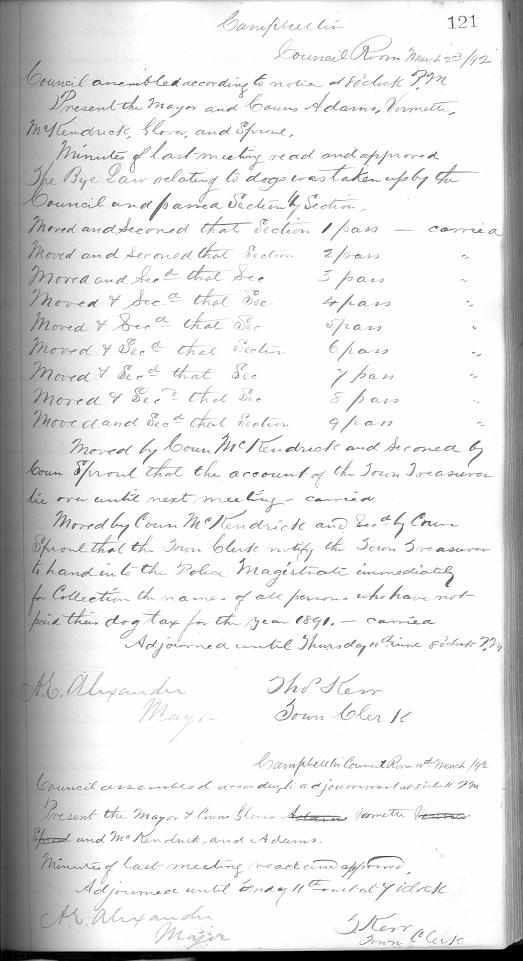 121
Campbellton
Council Room March 2nd /92
Council assembled according to notice at 8 o'clock P.M
Present the Mayor and Couns Adams, Vermette,
McKendrick, Glover, and Sproul,
Minutes of last meeting read and approved
The Bye Law relating to dogs was taken up by the
Council and passed Section by Section,
Moved and Seconed that Section 1 pass — carried
Moved and Seconed that Section 2 pass "
Moved and Secd that Sec 3 pass "
Moved & Secd that Sec 4 pass "
Moved & Secd that Sec 5 pass "
Moved & Secd that Section 6 pass "
Moved & Secd that Sec 7 pass "
Moved & Secd that Sec 8 pass "
Moved and Secd that Section 9 pass "
Moved by Coun McKendrick and Seconed by
Coun Sproul that the account of the Town Treasurer
lie over until next meeting - carried
Moved by Coun McKendrick and Secd by Coun
Sproul that the Town Clerk notify the Town Treasurer
to hand in to the Police Magistrate immediately
for Collection the names of all persons who have not
paid their dog tax for the year 1891. — carried
Adjourned until Thursday 10th 8 o'clock P.M
A.E. Alexander Thos Kerr
Mayor Town Clerk
Campbellton Council Room 10th March /92
Council assembled according to adjournment at 8 o'clock PM
Present the Mayor & Couns Glover Adams Vermette
Sproul and McKendrick, and Adams.
Minutes of last meeting read and approved,
Adjourned until Friday 11th inst at 7 o'clock
A.E. Alexander T. Kerr
Mayor Town Clerk